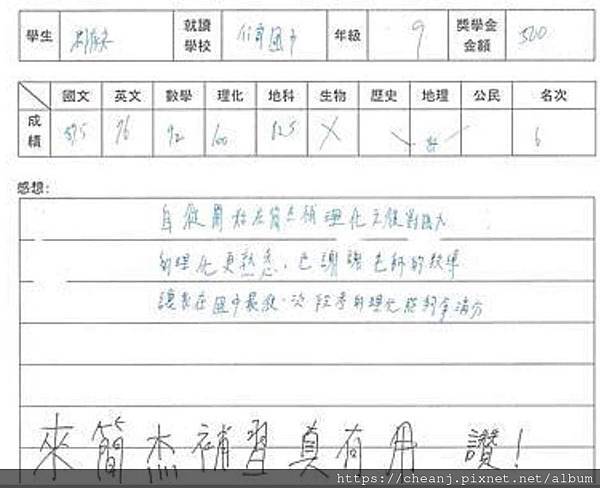 學生 就讀學校 仁育國中 年級 9 獎學金金額 500
國文 英文 數學 理化 地科 生物 歷史 地理 公民 名次
成績 76 92 100 6
感想:
自從開始在簡杰補理化之後對國中
的理化更熟悉,也謝謝老師的教導
讓我在國中最後一次段考的理化能夠拿滿分
來簡杰補習真有用 讚!
https://cheanj.pixnet.net/album